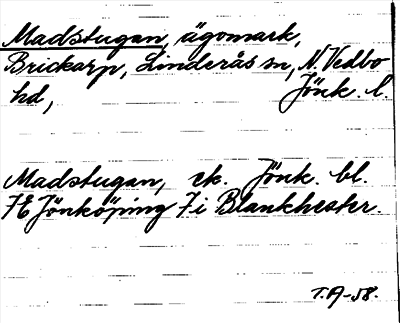 Madstugan, ägomark,
Brickarp, Linderås sn, N. Vedbo
hd, Jönk. l.
Madstugan, ek. Jönk. bl.
7E Jönköping 7i Blankhester.
T.A-58.